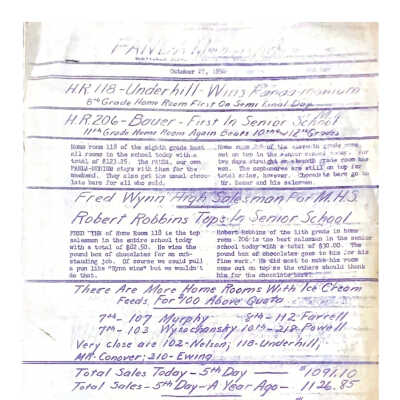 October 27, 1950
H.R 118 - Underhill - Wins
8th Grade Home Room First On Semi Final Day
H.R. 206 - Bauer - First In Senior School
11th Grade Home Room Again Beats 10th & 12th Grades
Home room 118 of the eighth grade beat
all rooms in the school today with a
total of $123.25. The PANDA, our own
PANDA-MONIUM stays with them for the
weekend. They also get the usual choco-
late bars for all who sold.
Home room 206 of the eleventh grade came
out on top in the senior school today. For
two days straight an eleventh grade room has
won. The sophomores are still on top for
total sales, however. Chocolate bars go to
Mr. Bauer and his salesmen.
Fred Wynn High Salesman For M.H.S.
Robert Robbins Tops In Senior School
FRED WYNN of Home Room 118 is the top
salesman in the entire school today
with a total of $62.50. He wins the
pound box of chocolates for an out-
standing job. Of course we could pull
a pun like "Wynn wins" but we wouldn't
do that.
Robert Robbins of the 11th grade in home
room 206 is the best salesman in the senior
school today with a total of $30.00. The
pound box of chocolates goes to him for his
fine work. He did most to make his room
come out on top so the others should thank
him for the chocolate bars!
There Are More Home Rooms With Ice Cream
Feeds. For $100 Above Quota
7th - 107 Murphy 8th - 112 Farrell
7th - 103 Wysochansky 10th - 218 Powell
Very close are 102 - Nelson; 118 - Underhill;
Conover; 210 - Ewing
Total Sales Today - 5th Day — $1091.10
Total Sales - 5th Day - A Year Ago - 1126.85